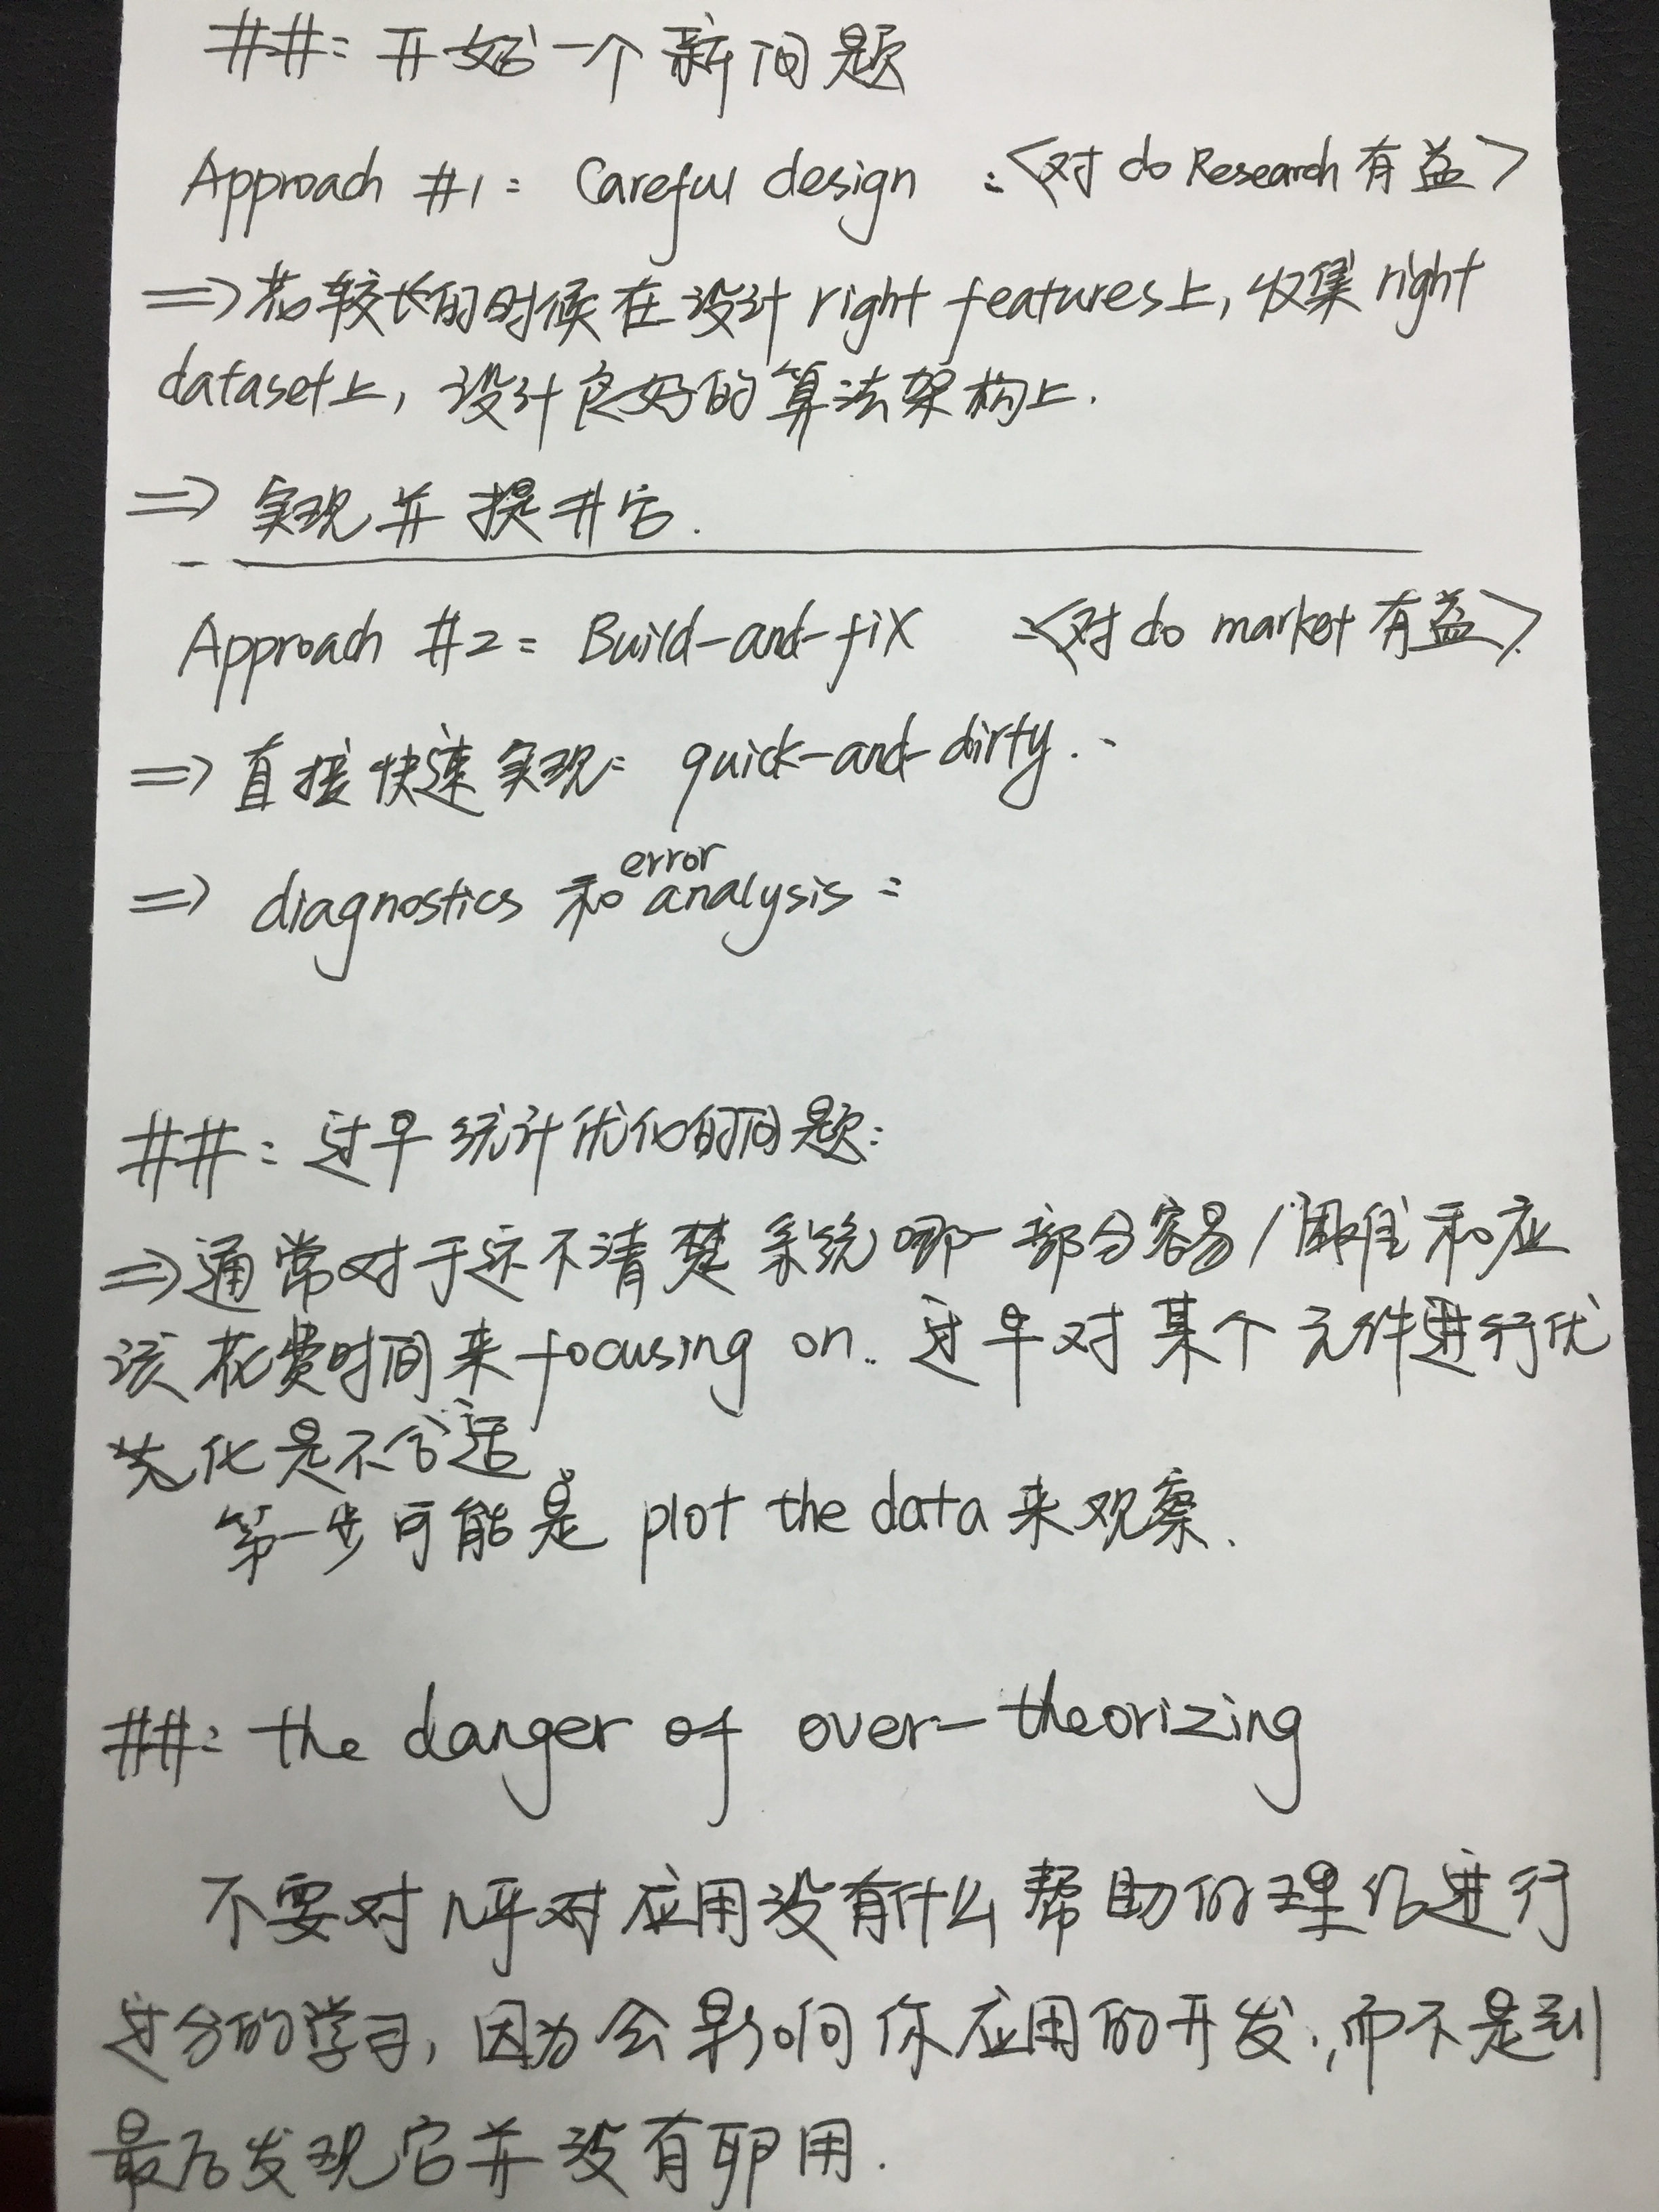 ##: 开始一个新问题
Approach #1: Careful design :<对 do Research 有益>
=> 花较长的时候在设计 right features上, 收集 right
dataset上, 设计良好的算法架构上.
=> 实现并提升它.
Approach #2: Build-and-fix :<对 do market 有益>
=> 直接快速实现: quick-and-dirty.
=> diagnostics 和 error analysis:
##: 过早统计优化的问题:
=> 通常对于还不清楚系统哪一部分容易/困难和应
该花费时间来 focusing on.. 过早对某个元件进行优
化是不合适。
第一步可能是 plot the data 来观察、
##: the danger of over-theorizing
不要对几乎对应用没有什么帮助的理论进行
过分的学习, 因为会影响你应用的开发, 而不是到
最后发现它并没有卵用.